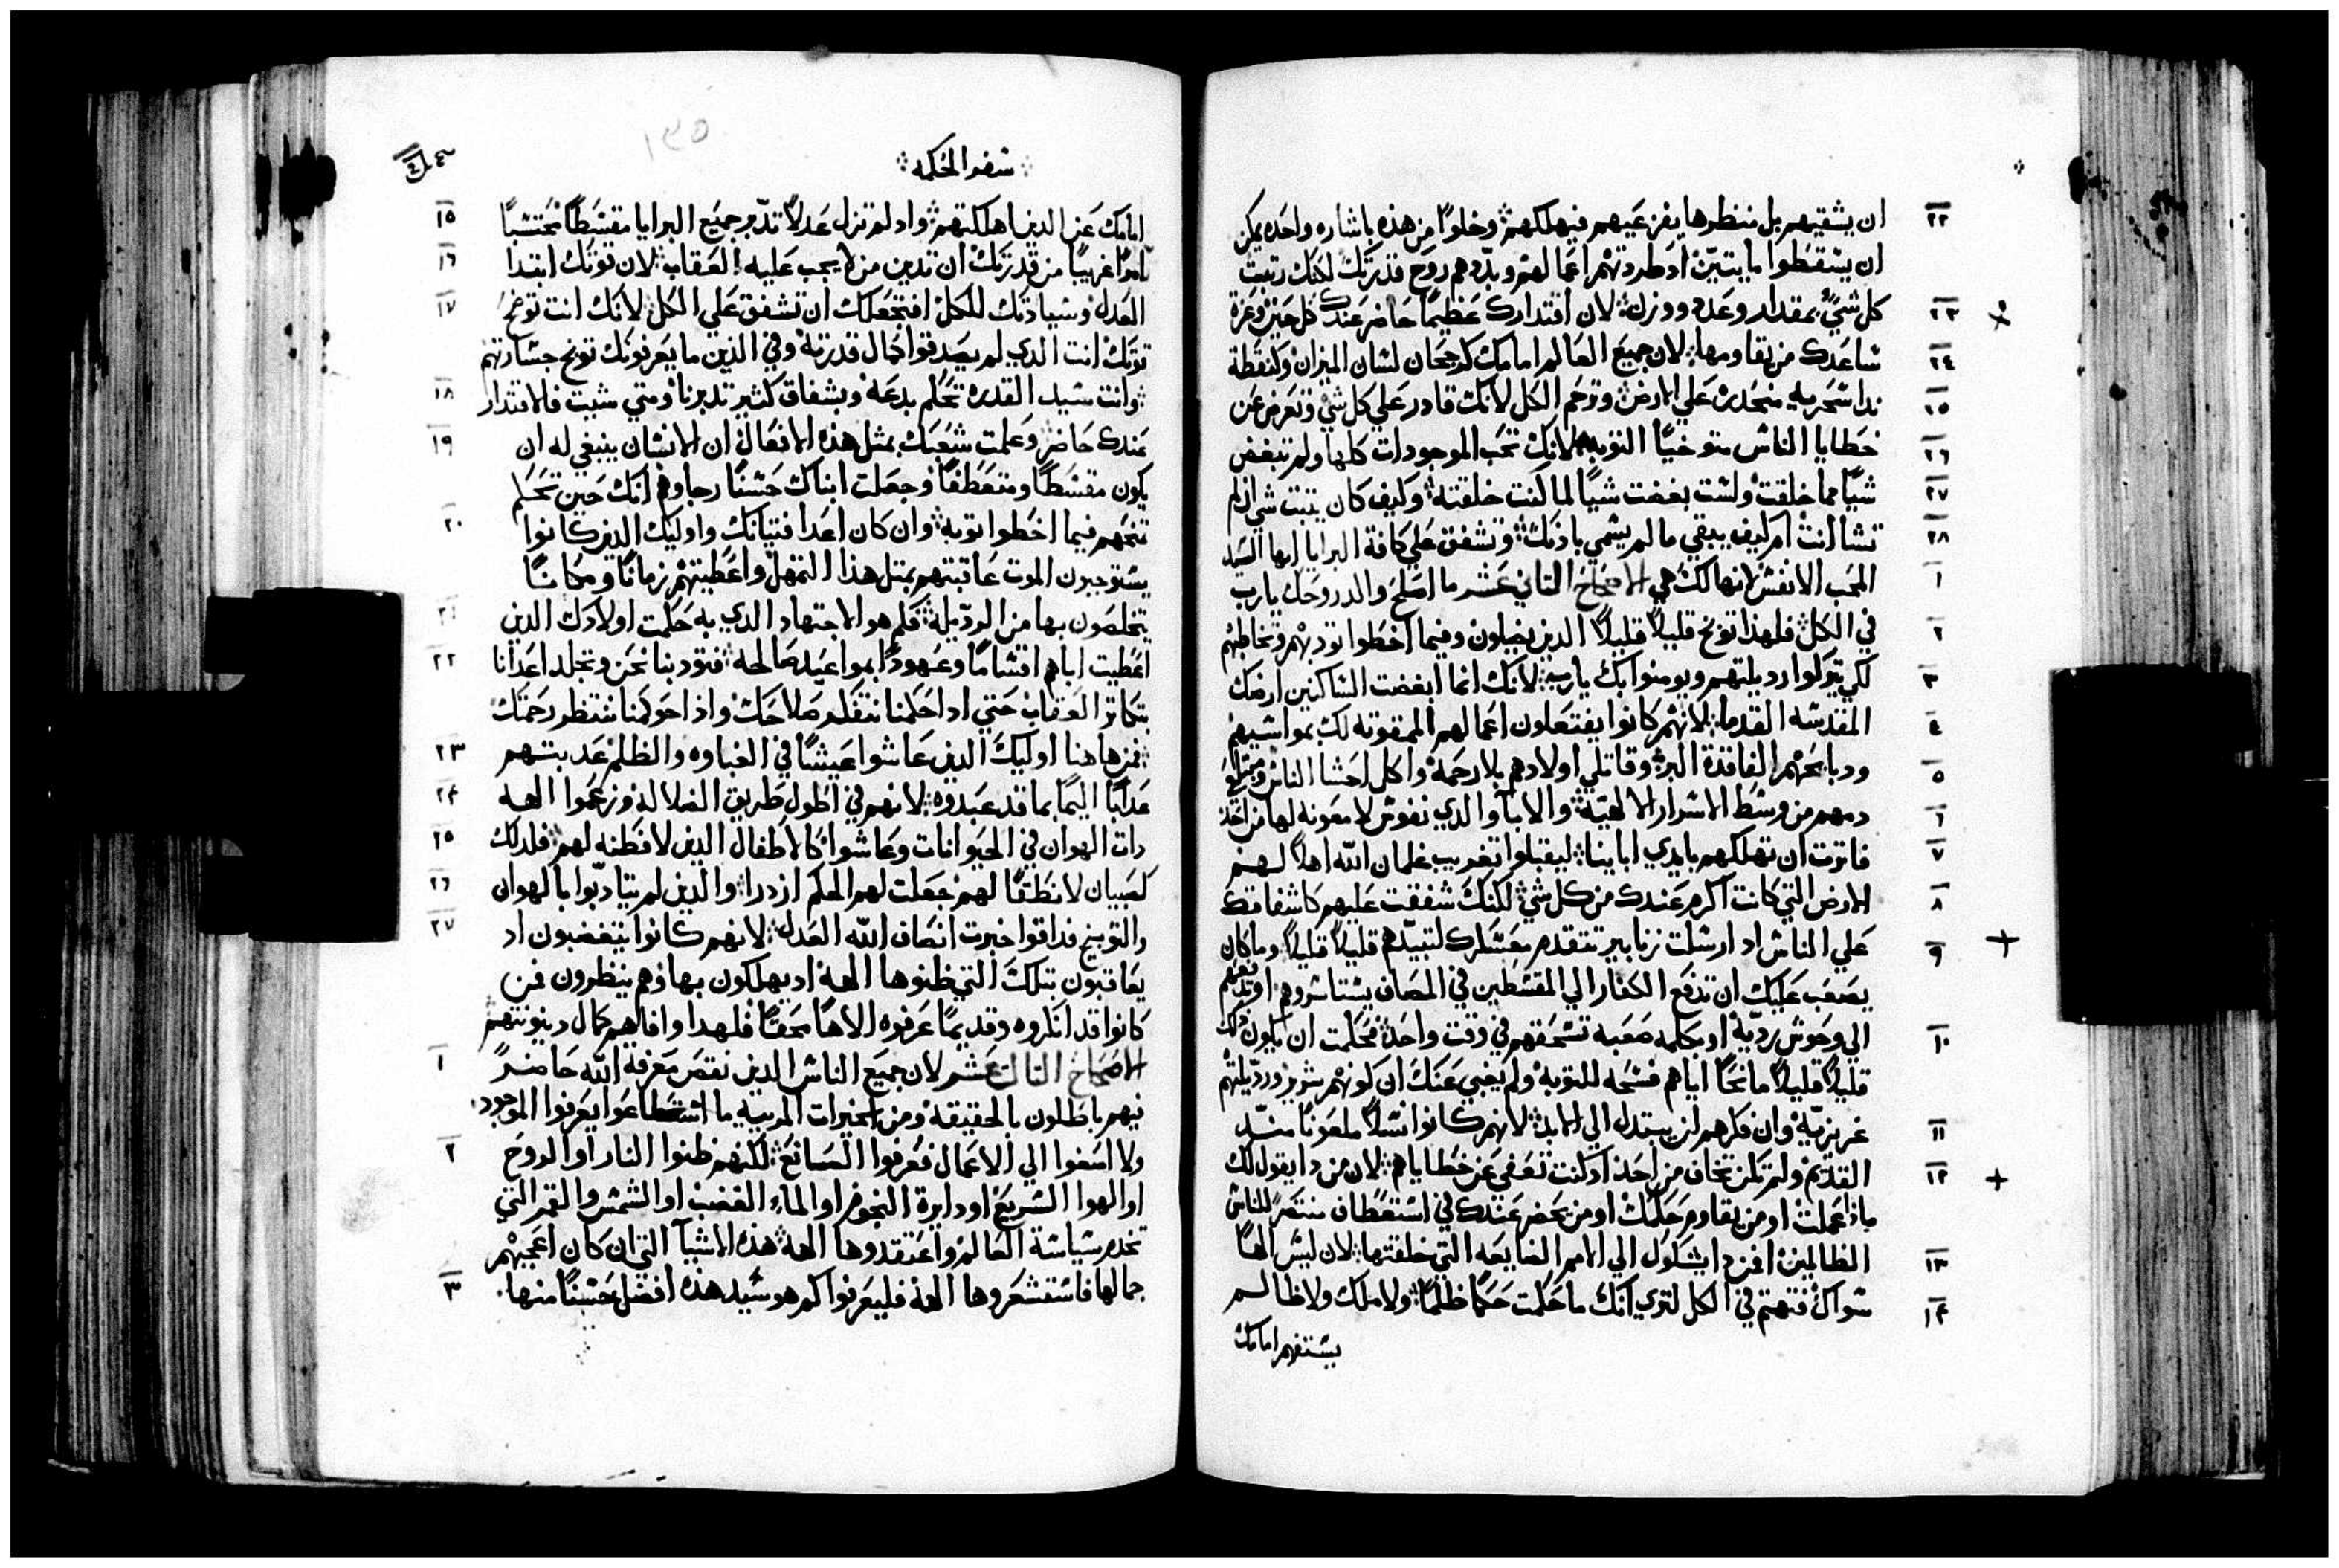 ٢٢ ان يشقيهم بل منظرها يفزعهم فيهلكهم وخلوًا من هذه باشاره واحده يمكن
ان يسقطوا مايتين اد طردتهم اعمالهم وبدّدهم روح قدرتك لكنك رتبت
٢٣ كل شيٍ بمقدار وعدد ووزن لان اقتدارك عظيمًا حاضر عندك كل حين وعزة
٢٤ ساعدك من يقاومها لان جميع العالم امامك كرجحان لسان الميزان وكنقطة
٢٥ ندا سحريه منحدرة علي الارض وترحم الكل لانك قادر علي كل شي وتعرض عن
٢٦ خطايا الناس متوخيًا التوبه لانك تحب الموجودات كلها ولم تبغض
٢٧ شيًا مما خلقت ولست بغضت شيًا لما كنت خلقته وكيف كان يثبت شي ان لم
٢٨ تشا انت ام كيف يبقي ما لم يسمي باذنك وتشفق علي كافة البرايا ايها السيد
١ المحب الانفس لانها لك هي الاصحاح الثاني عشر ما اصلح والد روحك يارب
٢ في الكل فلهذا توبخ قليلاً قليلاً الذين يضلون وفيما اخطوا تودبهم وتخاطبهم
٣ لكي يتركوا رديلتهم ويومنوا بك يارب لانك انما ابغضت الساكنين ارضك
٤ المقدسه القدما لانهم كانوا يفتعلون اعمالهم الممقوته لك بمواشيهم
٥ ودبايحهم الفاقدة البر وقاتلي اولادهم بلا رحمة واكل احشا الناس
٦ دمهم من وسط الاسرار الالهية والابا والدي نفوس لا معونه لها
٧ فاترت ان تهلكهم بايدي ابايناء ليقبلوا تغريب غلمان الله اهلاً لهم
٨ الارض التي كانت اكرم عندك من كل شي لكنك شفقت عليهم كاشفاقك
٩ علي الناس اد ارسلت زنابير تتقدم معسكرك لتبيدهم قليلاً قليلاً وما كان
يصعب عليك ان تدفع الكفار الي المقسطين في المصاف يستاسروهم او تدفعهم
١٠ الي وحوش رديّة او بكلمه صعبه تسحقهم في وقت واحد فحكمت ان يكون ذلك
قليلاً قليلاً مانحًا اياهم فسحه للتوبة ولم يغبي عنك ان كونهم شرير ورديلتهم
١١ غريزية وان فكرهم لن يبتدل الي الابد لانهم كانوا نسلاً ملعونًا منذ
١٢ القديم ولم تكن تخاف من احد اد كنت تعفي عن خطاياهم لان من دا يقول لك
ماذا عملت او من يقاوم حكمك او من يحضر عندك في استعطاف منتصرًا للناس
١٣ الظالمين افمن دا يشكوك الي الامم الضايعه التي خلقتها لان ليس الهًا
١٤ سواك فتهتم في الكل لتري انك ما حكمت حكمًا ظلمًا ولا ملك ولا ظالم
يستفهم امامك
سفر الحكمه
١٣٥
امامك عن الدين اهلكتهم واد لم تزل عدلاً تدبر جميع البرايا مقسطًا محتسبًا ١٥
امرًا غريبًا من قدرتك ان تدين من لا يجب عليه العقاب لان قوتك ابتدا ١٦
العدل وسيادتك للكل افتجعلك ان تشفق علي الكل لانك انت توضح ١٧
قوتك انت الدي لم يصدقوا كمال قدرته وفي الدين ما يعرفونك توبخ جسارتهم
وانت سيد القدرة تحكم بدعة وبشفاق كثير تدبرنا ومتي شيت فالاقتدار ١٨
عندك حاضر وعلمت شعبك بمثل هذه الافعال ان الانسان ينبغي له ان ١٩
يكون مقسطًا ومتعطفًا وجعلت ابناك حسنًا رجاوهم انك حين تحكم
تمنحهم فيما اخطوا توبة وان كان اعدا فتيانك واوليك الدين كانوا ٢٠
يستوجبون الموت عاقبتهم بمثل هذا التمهل واعطيتهم زمانًا ومكانًا
يتخلصون بها من الرديلة فكم هو الاجتهاد الدي به حكمت اولادك الدين ٢١
اعطيت اباهم اقسامًا وعهودًا بمواعيد صالحه فتودبنا نحن وتجلد اعدانا ٢٢
بتكاتر العقاب حتي ادا حكمنا نتفكر صلاحك واذا حوكمنا ننتظر رحمتك
فمن هاهنا اوليك الدين عاشوا عيشًا في الغباوه والظلم عدبتهم ٢٣
عدابًا اليمًا بما قد عبدوه لانهم في اطول طريق الضلالة وزعموا الهه ٢٤
دات الهوان في الحيوانات وعاشوا كالاطفال الدين لا فطنه لهم فلدلك ٢٥
كصبيان لا نطقًا لهم جعلت لهم الحكم ازدرا والدين لم يتادبوا بالهوان ٢٦
والتوبيخ فداقوا خبرت انصاف الله العدل لانهم كانوا يتغضبون اد ٢٧
يعاقبون بتلك التي ظنوها الهة اد يهلكون بها وهم ينظرون فمن
كانوا قد انكروه وقديمًا عرفوه الاهًا محقًا فلهدا وافاهم كمال دينونتهم
الاصحاح التالت عشر لان جميع الناس الدين نقص معرفة الله حاضرً ١
فيهم باطلون بالحقيقة ومن الخيرات المرييه ما استطاعوا يعرفوا الموجود
ولا اصغوا الي الاعمال فعرفوا الصانع لكنهم ظنوا النار او الروح ٢
او الهوا السريع او دايرة النجوم او الماء الغضب او الشمس والقمر التي
تخدم سياسة العالم واعتقدوها الهة هذه الاشيآ التي ان كان اعجبهم
جمالها فاستشعروها الهة فليعرفوا كم هو سيد هذه افضل حسنًا منها ٣